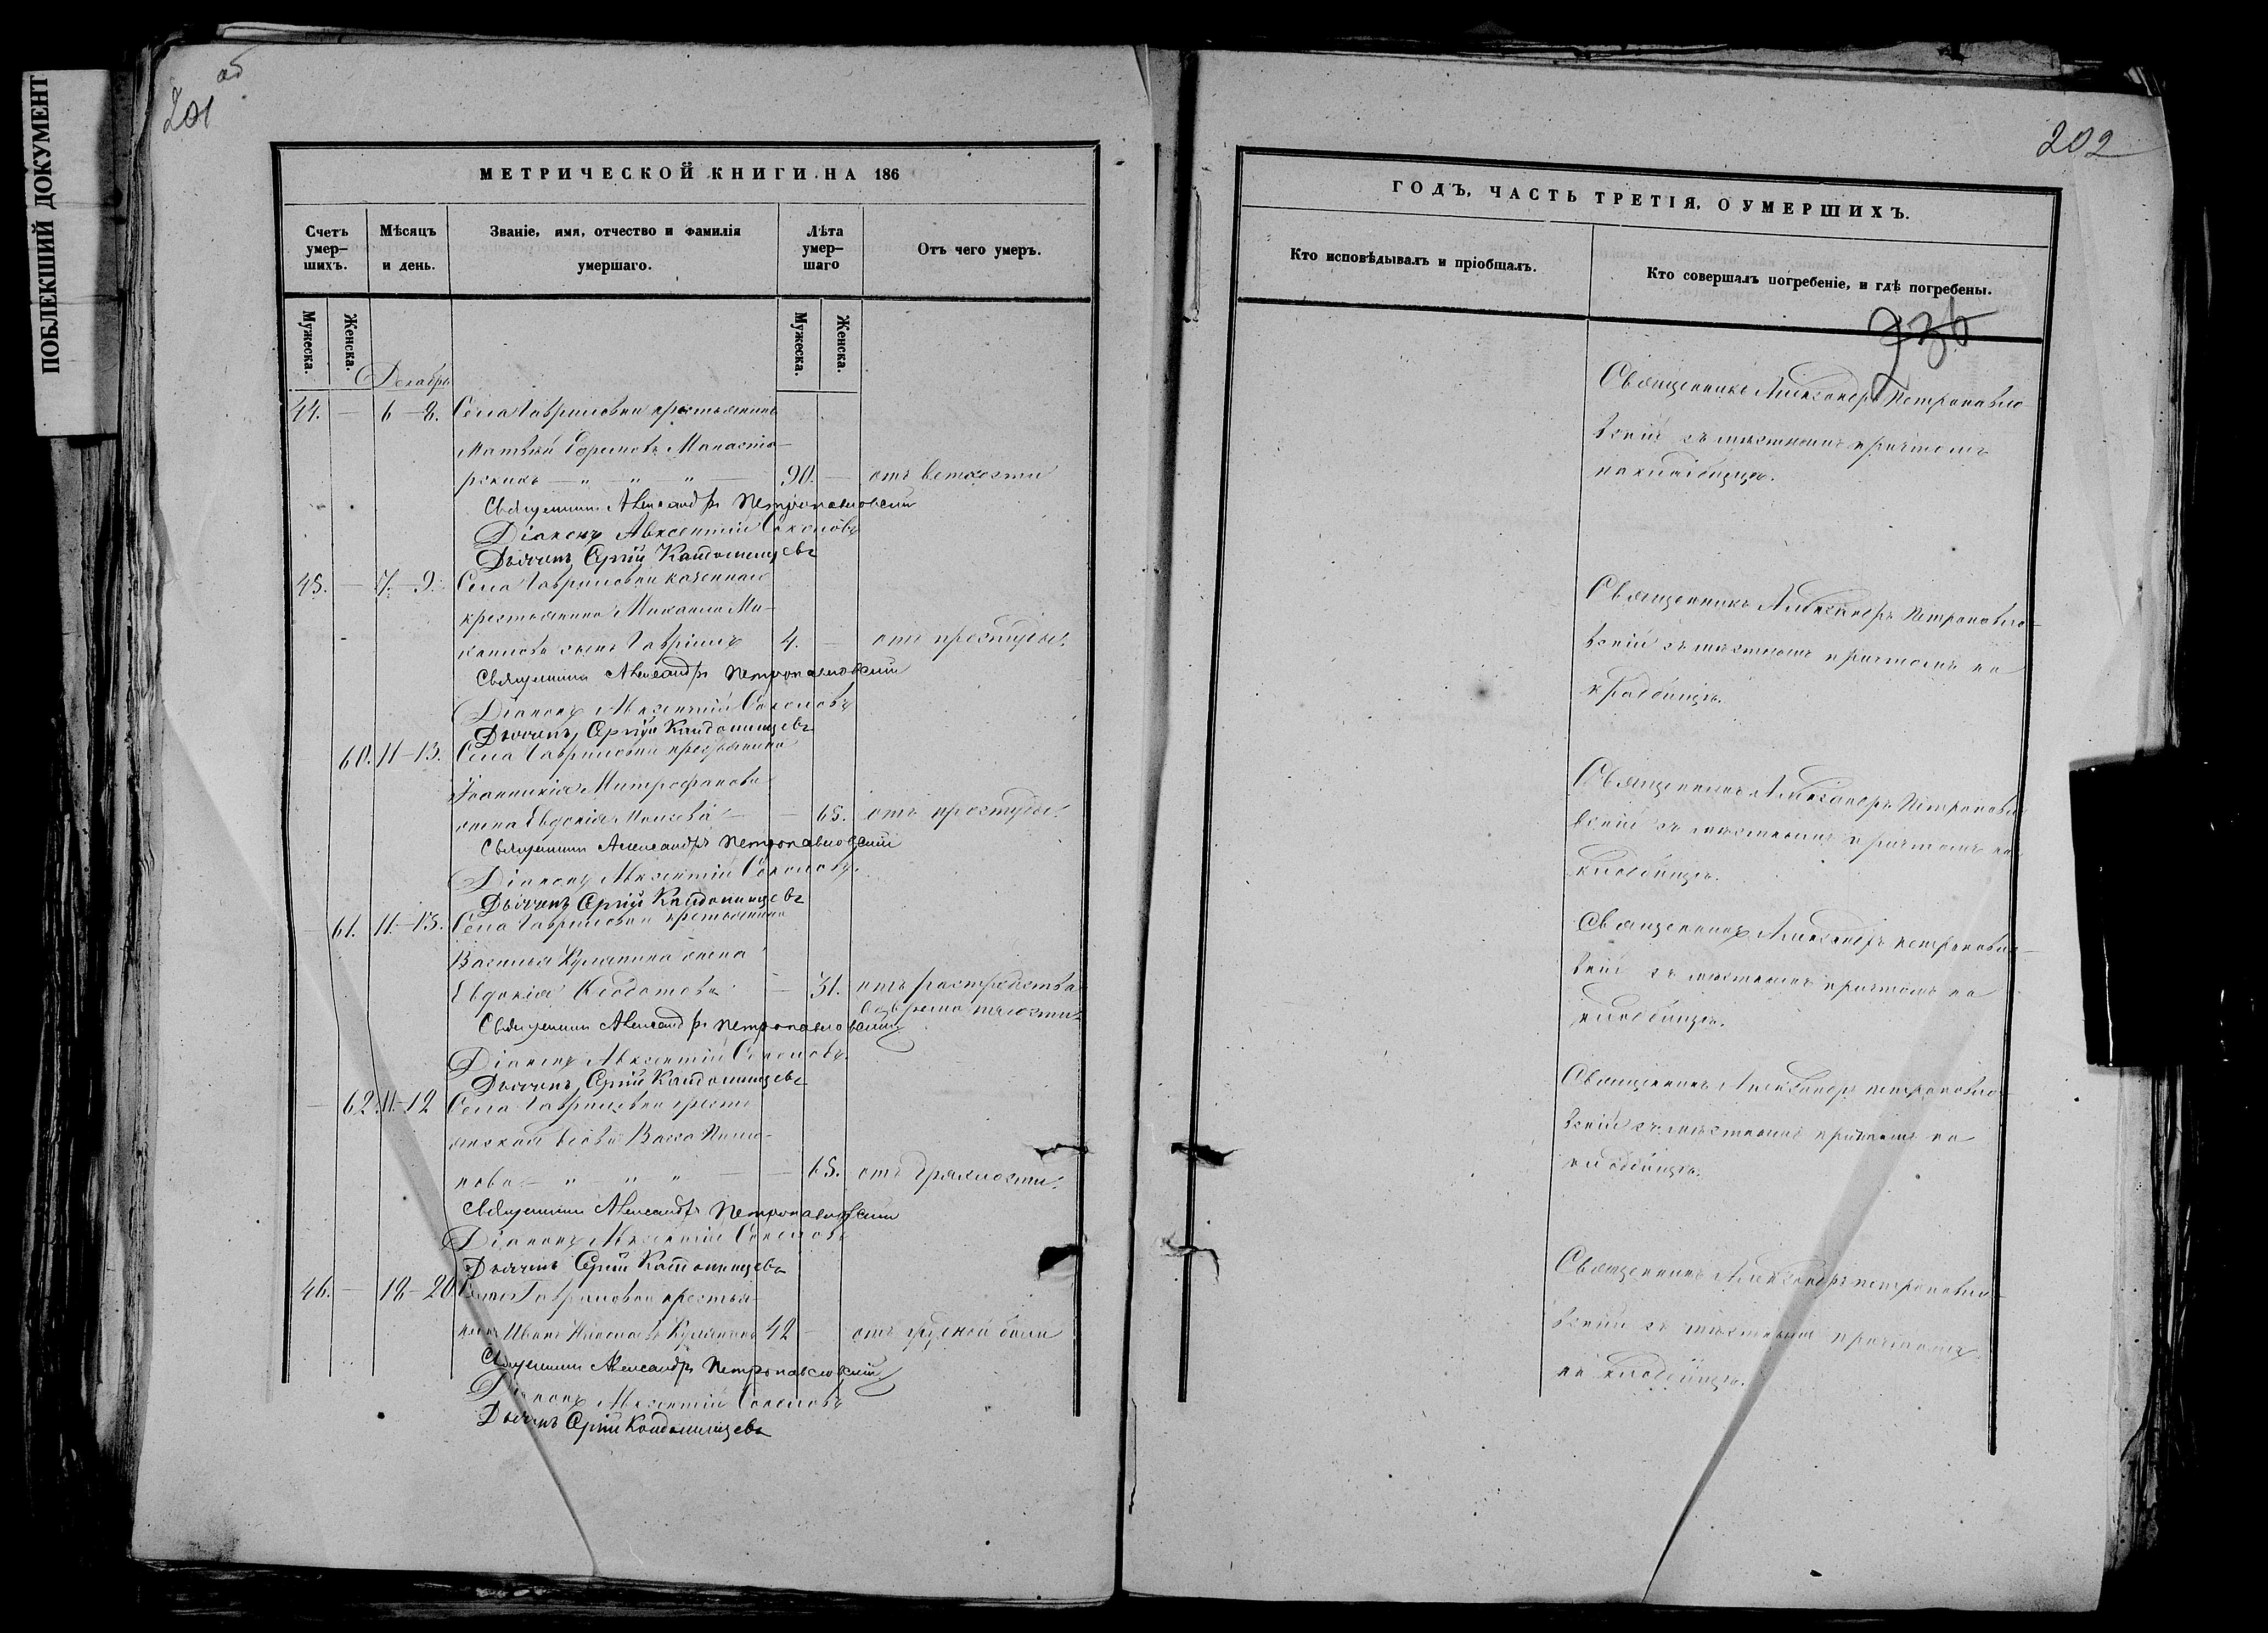 ПОБЛЕКШИЙ ДОКУМЕНТ
об
201
МЕТРИЧЕСКОЙ КНИГИ НА 186
Счетъ умер–шихъ.
Мѣсяцъ и день.
Званіе, имя, отчество и фамилія умершаго.
Лѣта умер–шаго
Отъ чего умеръ.
Мужеска.
Женска.
Мужеска.
Женска.
Декабрь
44. — 6 — 8. Села Гавриловки крестьянинъ
Матвѣй Ефремовъ Манасты–
рскихъ — " — " — " — 90. — отъ ветхости
Священникъ Александръ Петропавловскій
Діаконъ Авксентій Соколовъ
Дьячекъ Сергій Кандалинцевъ
45. — 7. — 9. Села Гавриловки казеннаго
крестьянина Михаила Ма–
сынъ Гавріилъ 4. — отъ простуды.
Священникъ Александръ Петропавловскій
Діаконъ Авксентій Соколовъ
Дьячекъ Сергій Кандалинцевъ
60. 11 — 13. Села Гавриловки крестьянина
Іоанникія Митрофанова
жена Евдокія — — 65. отъ простуды.
Священникъ Александръ Петропавловскій
Діаконъ Авксентій Соколовъ
Дьячекъ Сергій Кандалинцевъ
61. 11. — 13. Села Гавриловки крестьянина
Василья жена
Евдокія Ѳедотова — 31. отъ
Священникъ Александръ Петропавловскій
Діаконъ Авксентій Соколовъ
Дьячекъ Сергій Кандалинцевъ
— 62. 11. — 12 Села Гавриловки кресть–
янская вдова Васса
нова — " — " — " — — 65. отъ дряхлости.
Священникъ Александръ Петропавловскій
Діаконъ Авксентій Соколовъ
Дьячекъ Сергій Кандалинцевъ
46. — 18 — 20 Села Гавриловки крестья–
нинъ Иванъ 42 — отъ грудной боли
Священникъ Александръ Петропавловскій
Діаконъ Авксентій Соколовъ
Дьячекъ Сергій Кандалинцевъ
202
ГОДЪ, ЧАСТЬ ТРЕТІЯ, О УМЕРШИХЪ.
Кто исповѣдывалъ и пріобщалъ.
Кто совершалъ погребеніе, и гдѣ погребены.
Священникъ Александръ Петропавло
вскій съ мѣстнымъ причтомъ
на кладбищѣ.
Священникъ Александръ Петропавло–
вскій съ мѣстнымъ причтомъ на
кладбищѣ.
Священникъ Александръ Петропавло
вскій съ мѣстнымъ причтомъ на
кладбищѣ.
Священникъ Александръ Петропавло–
вскій съ мѣстнымъ причтомъ на
кладбищѣ.
Священникъ Александръ Петропавло–
вскій съ мѣстнымъ причтомъ на
кладбищѣ.
Священникъ Александръ Петропавло–
вскій съ мѣстнымъ причтомъ
на кладбищѣ.